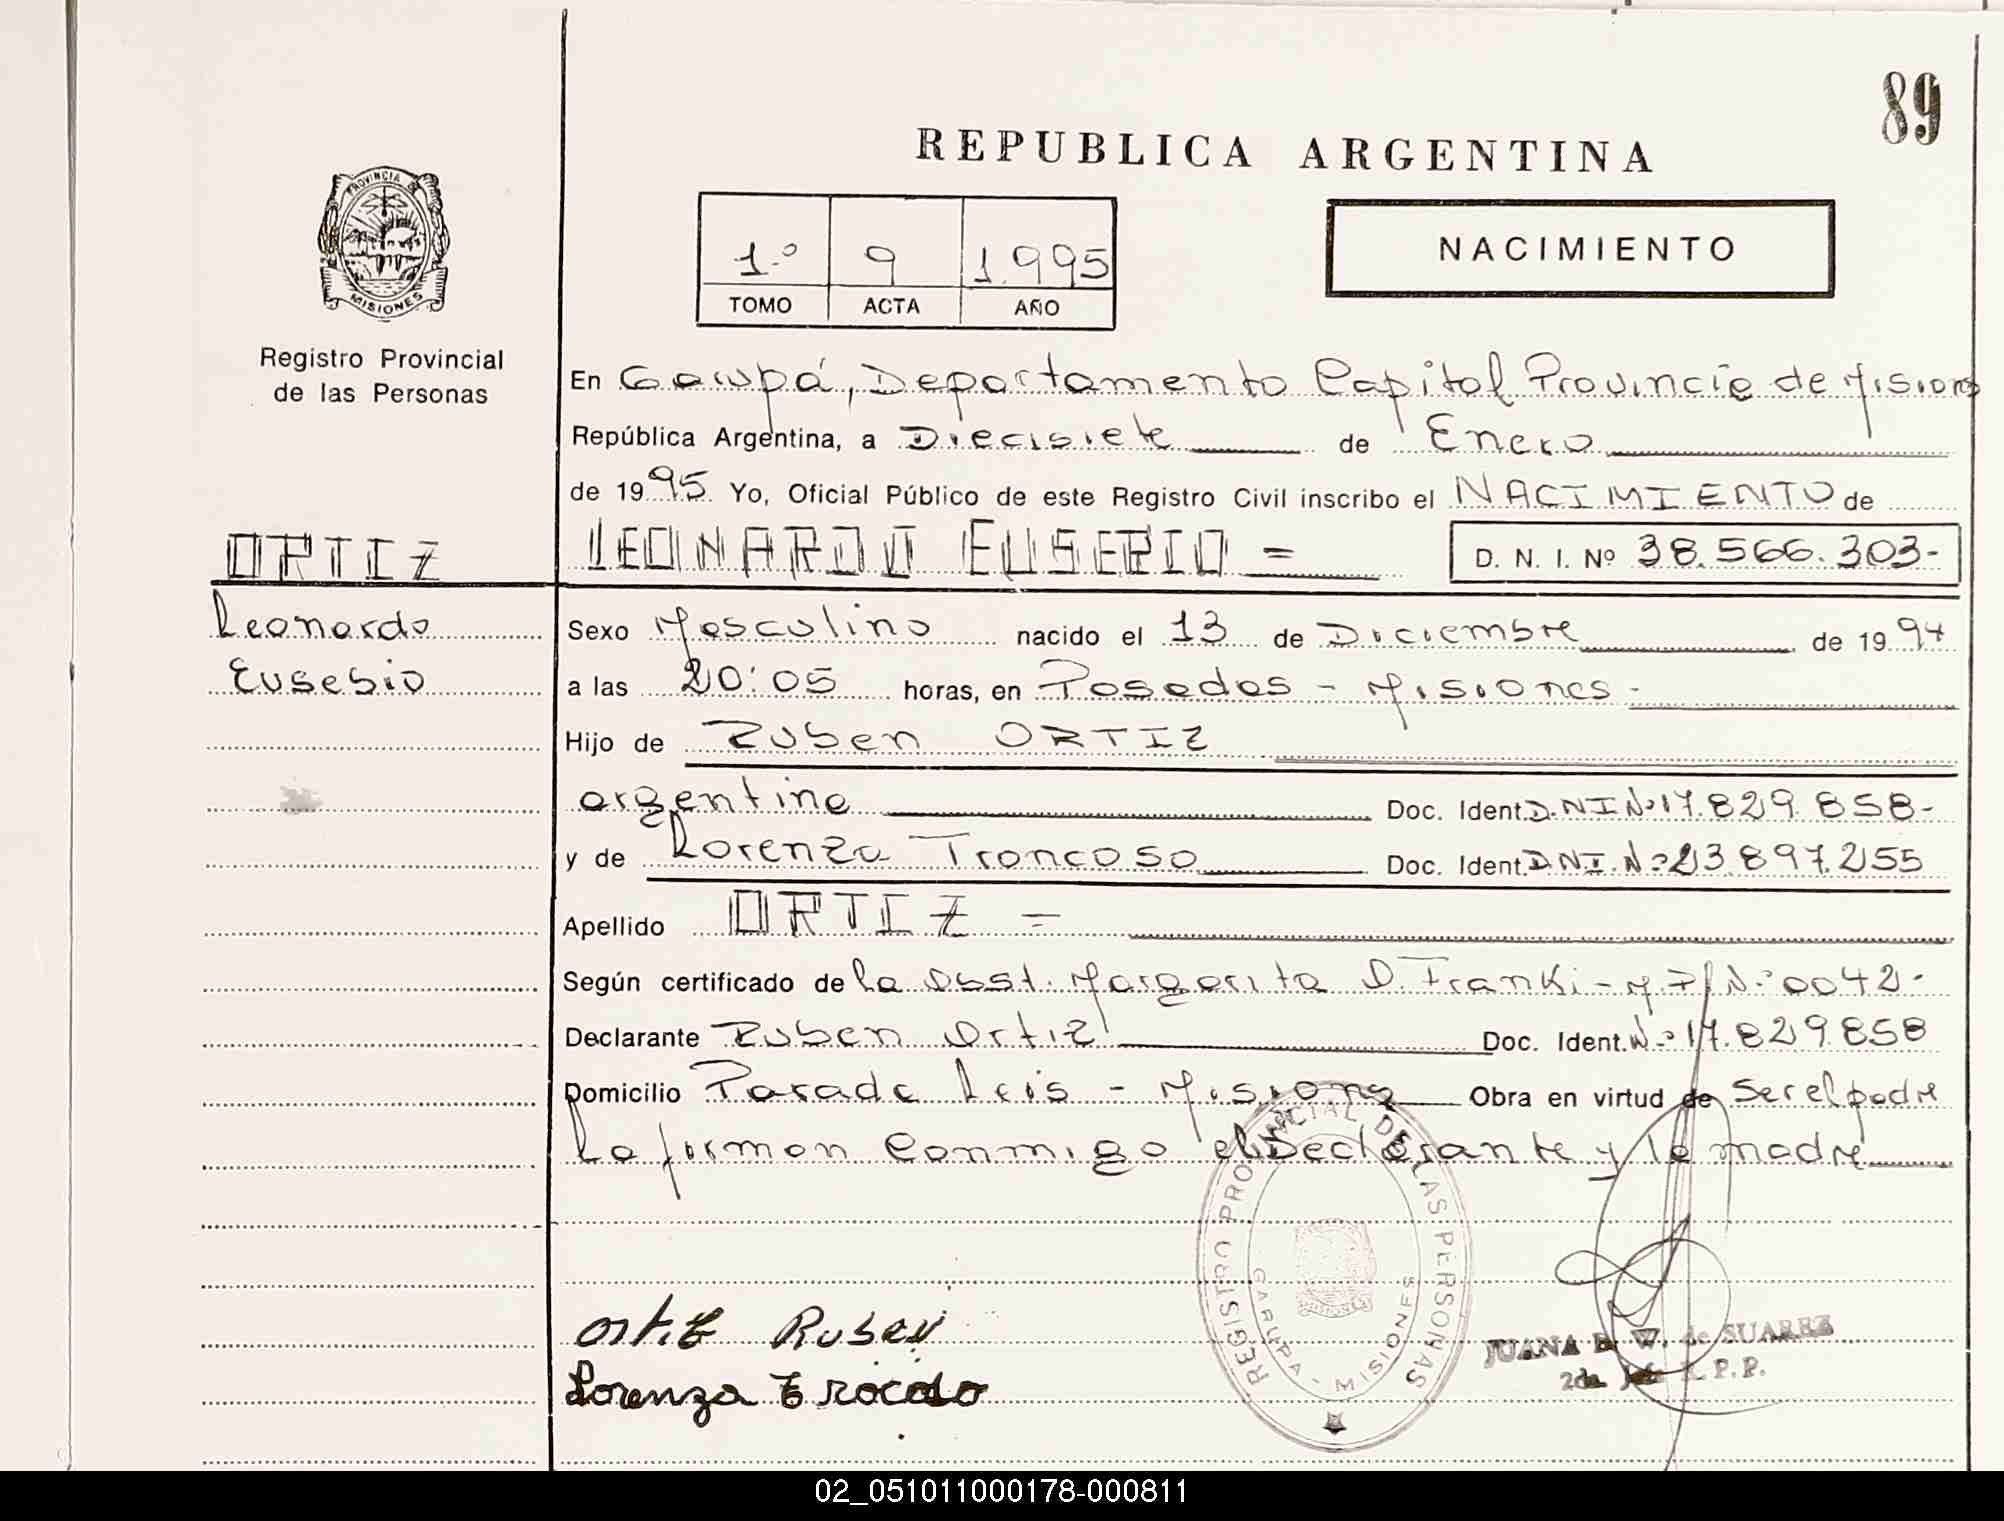 89
REPUBLICA ARGENTINA
PROVINCIA DE
MISIONES
1.º 9 1.995
TOMO ACTA AÑO
NACIMIENTO
Registro Provincial
de las Personas
En Garupá, Departamento Capital Provincia de Misiones
República Argentina, a Diecisiete de Enero
de 1995. Yo, Oficial Público de este Registro Civil inscribo el NACIMIENTO de
ORTIZ LEONARDO EUSEBIO = D. N. I. Nº 38.566.303-
Leonardo Sexo Masculino nacido el 13 de Diciembre de 1994
Eusebio a las 20:05 horas, en Posadas - Misiones -
Hijo de Ruben ORTIZ
argentino Doc. Ident. D.N.I Nº 17.829.858-
y de Lorenza Troncoso Doc. Ident. D.N.I. Nº 23.897.255
Apellido ORTIZ =
Según certificado de la Obst. Margarita D. Franki - M.P/Nº 0042-
Declarante Ruben Ortiz Doc. Ident. Nº 17.829.858
Domicilio Parada Leis - Misiones Obra en virtud de Ser el padre
La firman conmigo el Declarante y la madre
REGISTRO PROVINCIAL DE LAS PERSONAS
GARUPA - MISIONES
Ortiz Ruben
JUANA B. W. de SUAREZ
2da Jefe R. P. P.
Lorenza Trocoso
02_051011000178-000811